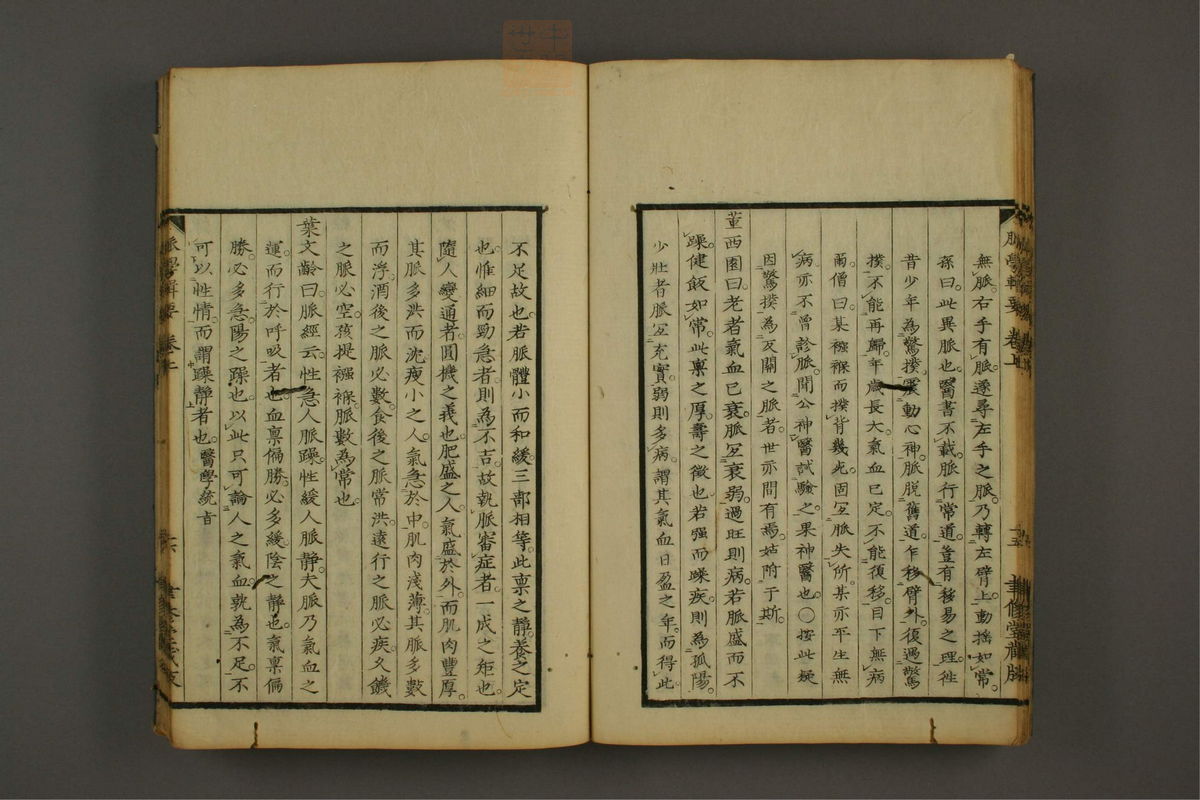 無脈右手有脈遂尋左手之脈乃轉左臂上動揺如常
孫曰此異脈也醫書不載脈行常道豈有移易之理徃
昔少年為驚撲震動心神脈脫舊道乍移臂外復遇驚
撲不能再歸年歲長大氣血已定不能復移目下無病
爾僧曰某襁褓而撲背幾死固冝脈失所某亦平生無
病亦不曾診脈聞公神醫試驗之果神醫也〇按此疑
因驚撲為反關之脈者世亦間有焉姑附于斯
董西園曰老者氣血已衰脈冝衰弱過旺則病若脈盛而不
躁健飯如常此稟之厚壽之徵也若强而躁疾則為孤陽
少壯者脈冝充實弱則多病謂其氣血日盈之年而得此
脈學輯要 卷上 十五 聿修堂藏版
不足故也若脈體小而和緩三部相等此稟之靜養之定
也惟細而勁急者則為不吉故執脈審症者一成之矩也
隨人變通者圓機之義也肥盛之人氣盛於外而肌肉豐厚
其脈多洪而沈瘦小之人氣急於中肌肉淺薄其脈多數
而浮酒後之脈必數食後之脈常洪遠行之脈必疾久饑
之脈必空孩提襁褓脈數為常也
葉文齡曰脈經云性急人脈躁性緩人脈靜夫脈乃氣血之
運而行於呼吸者也血稟偏勝必多緩陰之靜也氣稟偏
勝必多急陽之躁也以此只可論人之氣血孰為不足不
可以性情而謂躁靜者也醫學統旨
脈學輯要 卷上